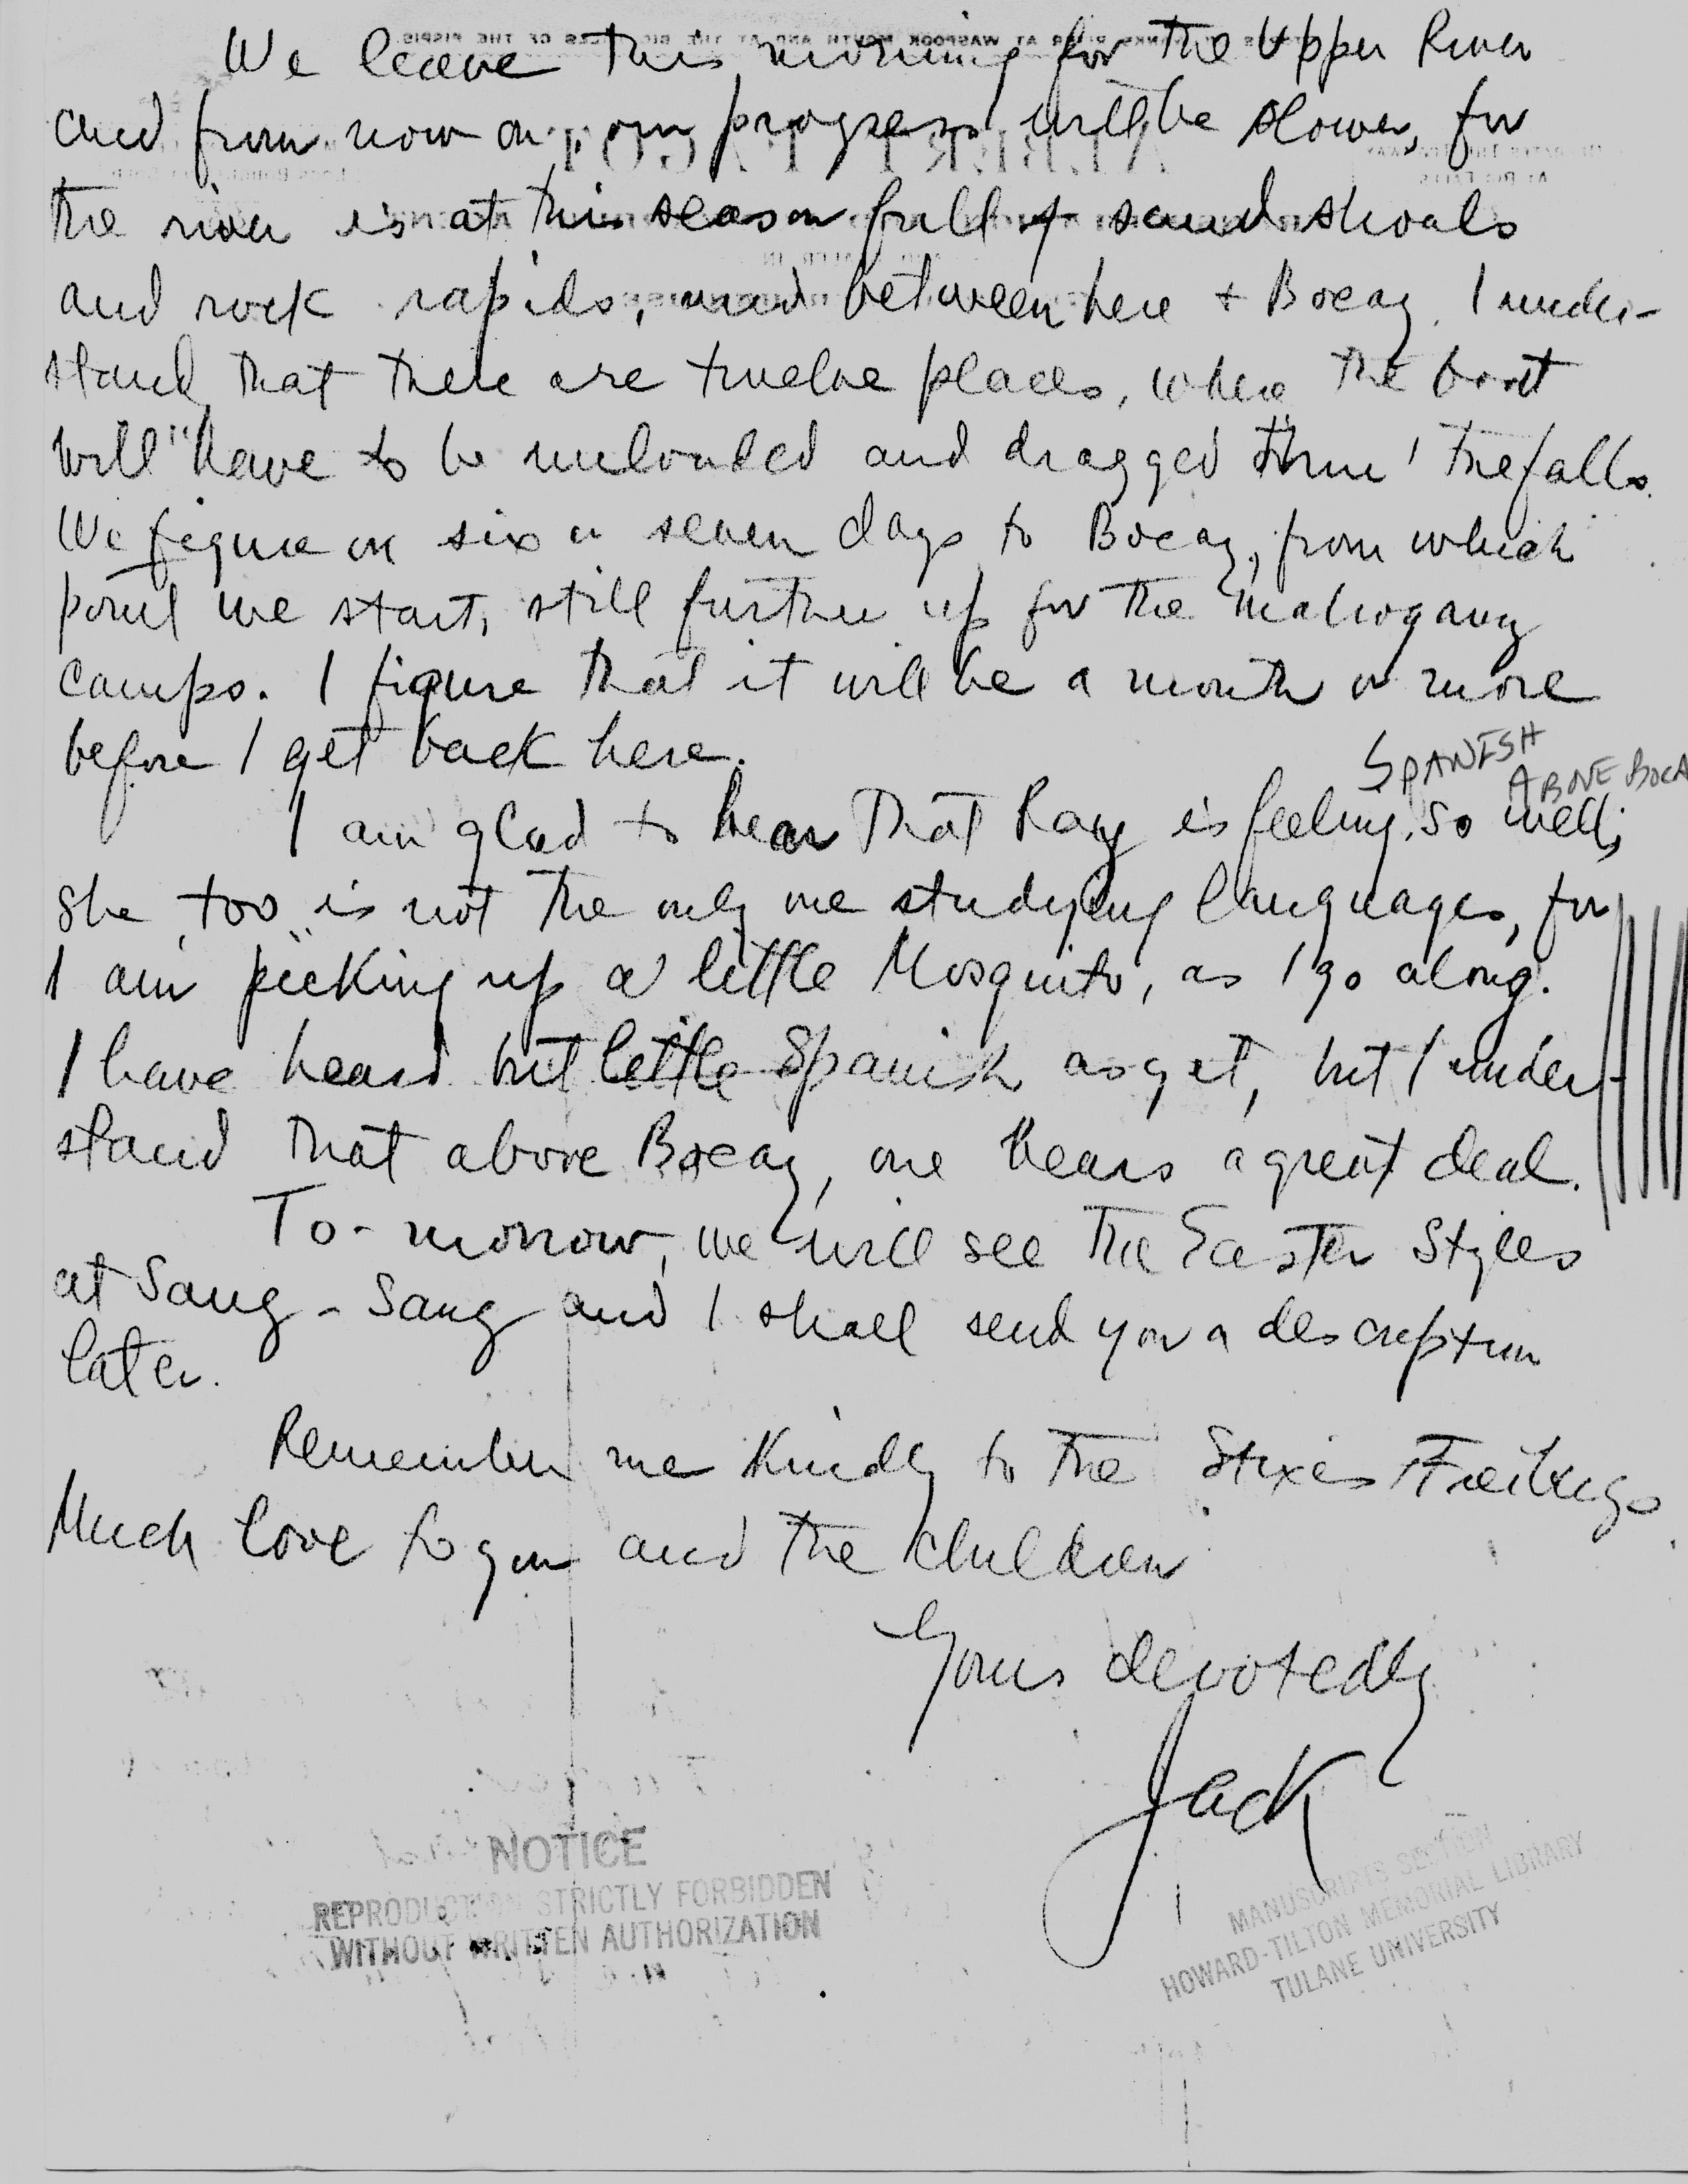 We leave this morning for the Upper River
and from now on, our progress will be slower, for
the river is at this season full of sand shoals
and rock rapids, and between here + Bocay, I under-
stand, that there are twelve places, where the boat
will have to be unloaded and dragged thru' the falls.
We figure on six or seven days to Bocay, from which
point we start, still further up for the mahogany
camps. I figure that it will be a month or more
before I get back here.
SPANISH
ABOVE BOCA
I am glad to hear that Ray is feeling so well;
She "too" is not the only one studying languages, for
I am picking up a little Mosquito, as I go along.
I have heard but little Spanish as yet, but I under-
stand that above Bocay, one hears a great deal.
To-morrow, we will see the Easter Styles
at Sang-Sang and I shall send you a description
later.
Remember me kindly to the Stixes + Freibergs.
Much love to you and the children
Yours devotedly
Jack
NOTICE
REPRODUCTION STRICTLY FORBIDDEN
WITHOUT WRITTEN AUTHORIZATION
MANUSCRIPTS SECTION
HOWARD-TILTON MEMORIAL LIBRARY
TULANE UNIVERSITY